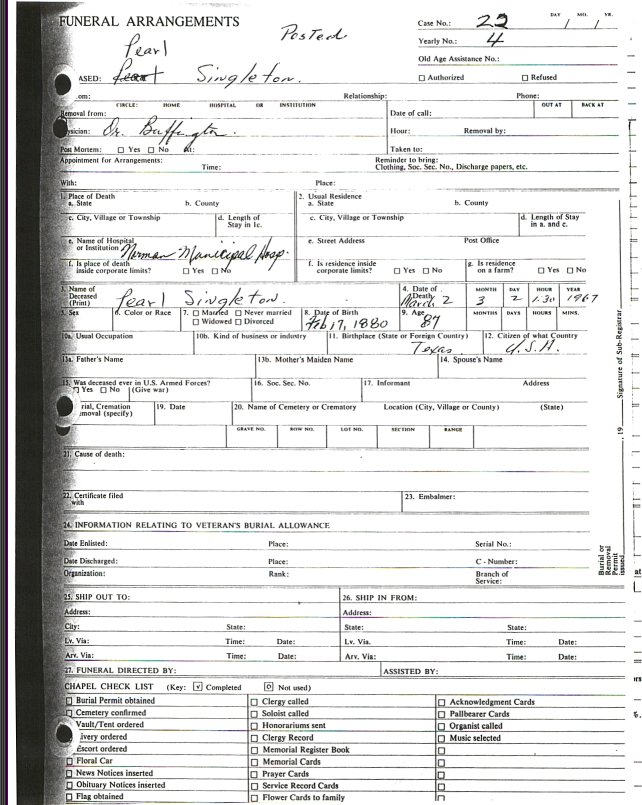 FUNERAL ARRANGEMENTS Posted Case No.: 22 DAY MO. YR.
/ /
Pearl Yearly No.: 4
ASED: Singleton. Old Age Assistance No.:
☐ Authorized ☐ Refused
om: Relationship: Phone:
CIRCLE: HOME HOSPITAL OR INSTITUTION OUT AT BACK AT
Removal from: Date of call:
ysician: Dr. Buffington. Hour: Removal by:
Post Mortem: ☐ Yes ☐ No At: Taken to:
Appointment for Arrangements: Reminder to bring:
Time: Clothing, Soc. Sec. No., Discharge papers, etc.
With: Place:
1. Place of Death 2. Usual Residence
a. State b. County a. State b. County
c. City, Village or Township d. Length of Stay in 1c. c. City, Village or Township d. Length of Stay in a. and c.
e. Name of Hospital or Institution Norman Municipal Hosp. e. Street Address Post Office
f. Is place of death inside corporate limits? ☐ Yes ☐ No f. Is residence inside corporate limits? ☐ Yes ☐ No g. Is residence on a farm? ☐ Yes ☐ No
3. Name of Deceased (Print) Pearl Singleton. 4. Date of Death March 2 MONTH DAY HOUR YEAR
3 2 1:30 1967
5. Sex 6. Color or Race 7. ☐ Married ☐ Never married ☐ Widowed ☐ Divorced 8. Date of Birth Feb 17, 1880 9. Age 87 MONTHS DAYS HOURS MINS.
10a. Usual Occupation 10b. Kind of business or industry 11. Birthplace (State or Foreign Country) Texas 12. Citizen of what Country U.S.A.
13a. Father's Name 13b. Mother's Maiden Name 14. Spouse's Name
15. Was deceased ever in U.S. Armed Forces? ☐ Yes ☐ No (Give war) 16. Soc. Sec. No. 17. Informant Address
rial, Cremation moval (specify) 19. Date 20. Name of Cemetery or Crematory Location (City, Village or County) (State)
GRAVE NO. ROW NO. LOT NO. SECTION RANGE
21. Cause of death:
22. Certificate filed with 23. Embalmer:
24. INFORMATION RELATING TO VETERAN'S BURIAL ALLOWANCE
Date Enlisted: Place: Serial No.:
Date Discharged: Place: C - Number:
Organization: Rank: Branch of Service:
25. SHIP OUT TO: 26. SHIP IN FROM:
Address: Address:
City: State: State: State:
Lv. Via: Time: Date: Lv. Via. Time: Date:
Arv. Via: Time: Date: Arv. Via: Time: Date:
27. FUNERAL DIRECTED BY: ASSISTED BY:
CHAPEL CHECK LIST (Key: ☑ Completed ☐ Not used)
☐ Burial Permit obtained ☐ Clergy called ☐ Acknowledgment Cards
☐ Cemetery confirmed ☐ Soloist called ☐ Pallbearer Cards
Vault/Tent ordered ☐ Honorariums sent ☐ Organist called
ivery ordered ☐ Clergy Record ☐ Music selected
Escort ordered ☐ Memorial Register Book ☐
☐ Floral Car ☐ Memorial Cards ☐
☐ News Notices inserted ☐ Prayer Cards ☐
☐ Obituary Notices inserted ☐ Service Record Cards ☐
☐ Flag obtained ☐ Flower Cards to family ☐
Signature of Sub-Registrar
, 19
Burial or Removal Permit issued
at